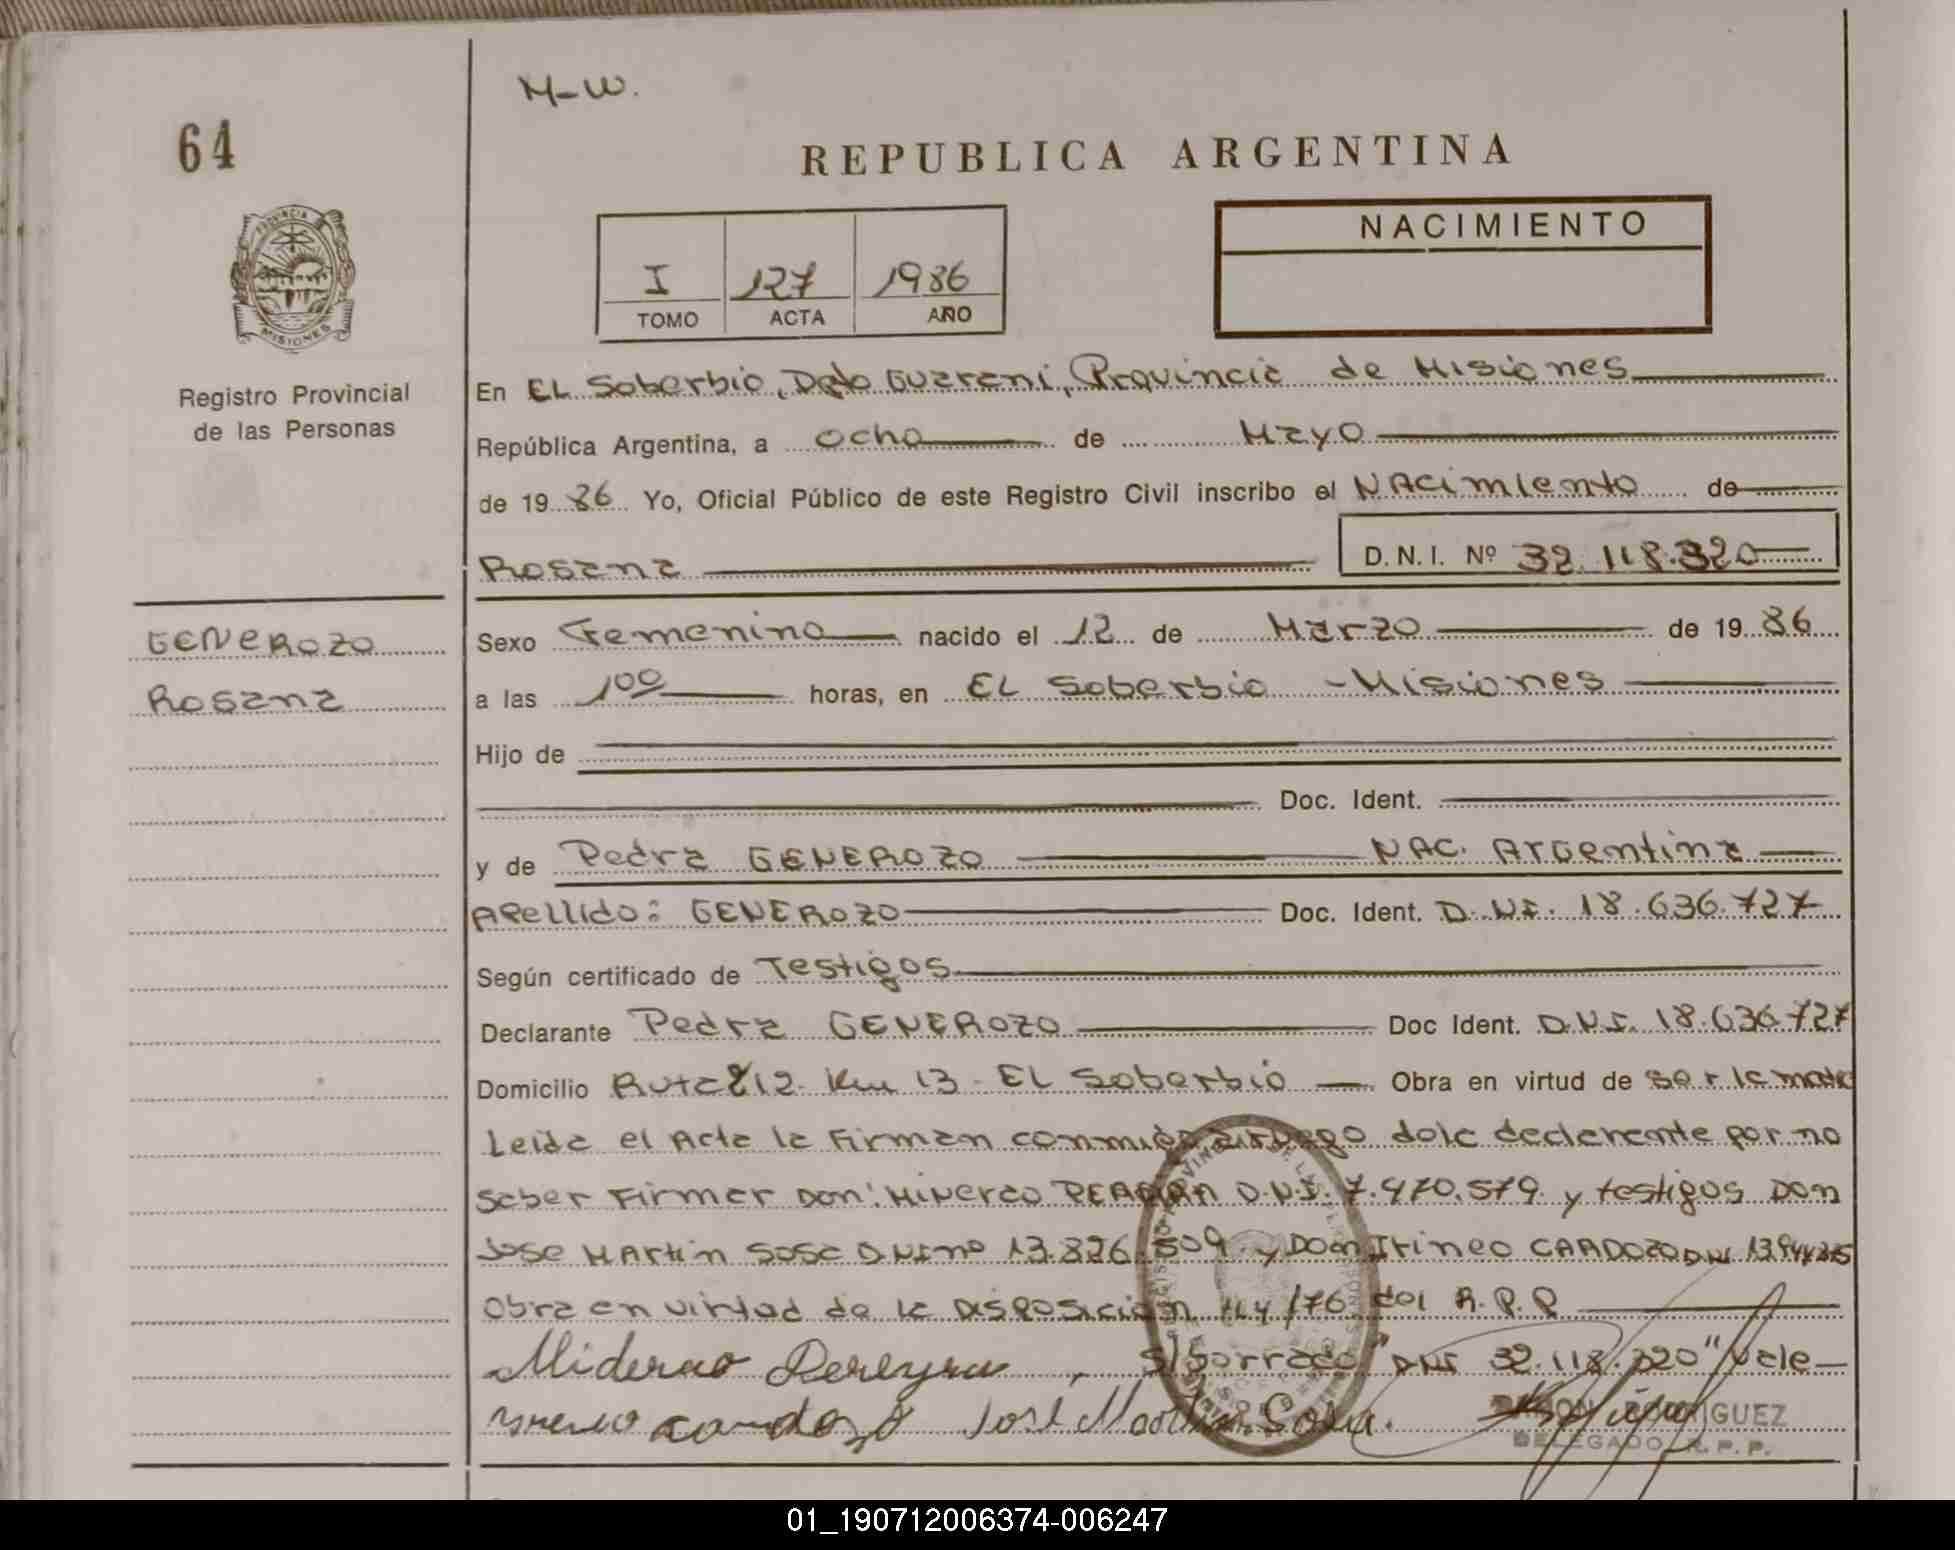 M-W.
64
REPUBLICA ARGENTINA
NACIMIENTO
I 127 1986
TOMO ACTA AÑO
PROVINCIA
MISIONES
Registro Provincial
de las Personas
En EL Soberbio, Dpto Guarani, Provincia de Misiones
República Argentina, a ocho de Mayo
de 1986 Yo, Oficial Público de este Registro Civil inscribo el NACimIento de
Rosana D.N.I. Nº 32.118.320
GENEROZO
Rosana
Sexo Femenino nacido el 12 de Marzo de 1986
a las 1oo horas, en EL Soberbio - Misiones
Hijo de
Doc. Ident.
y de Pedra GENEROZO NAC. Argentina
Apellido: GENEROZO Doc. Ident. D.NI. 18.636.727
Según certificado de Testigos
Declarante Pedra GENEROZO Doc Ident. D.N.I. 18.636.727
Domicilio Ruta 212 Km 13 - EL Soberbio Obra en virtud de ser la madre
Leida el Acta la Firman conmigo a ruego dela declarante por no
saber Firmar Don: D.N.I. 7.470.579 y testigos Don
Jose Martin Sosa D.NI nº 13.826.509 y Don Irineo CARDOZO DNI
Obra en virtud de la Disposicion 114/76 del R.P.P
Pereyra S/borrado "DNI 32.118.320" Vale
cardozo José Martin Sosa.
RAMON RODRIGUEZ
DELEGADO R.P.P.
01_190712006374-006247